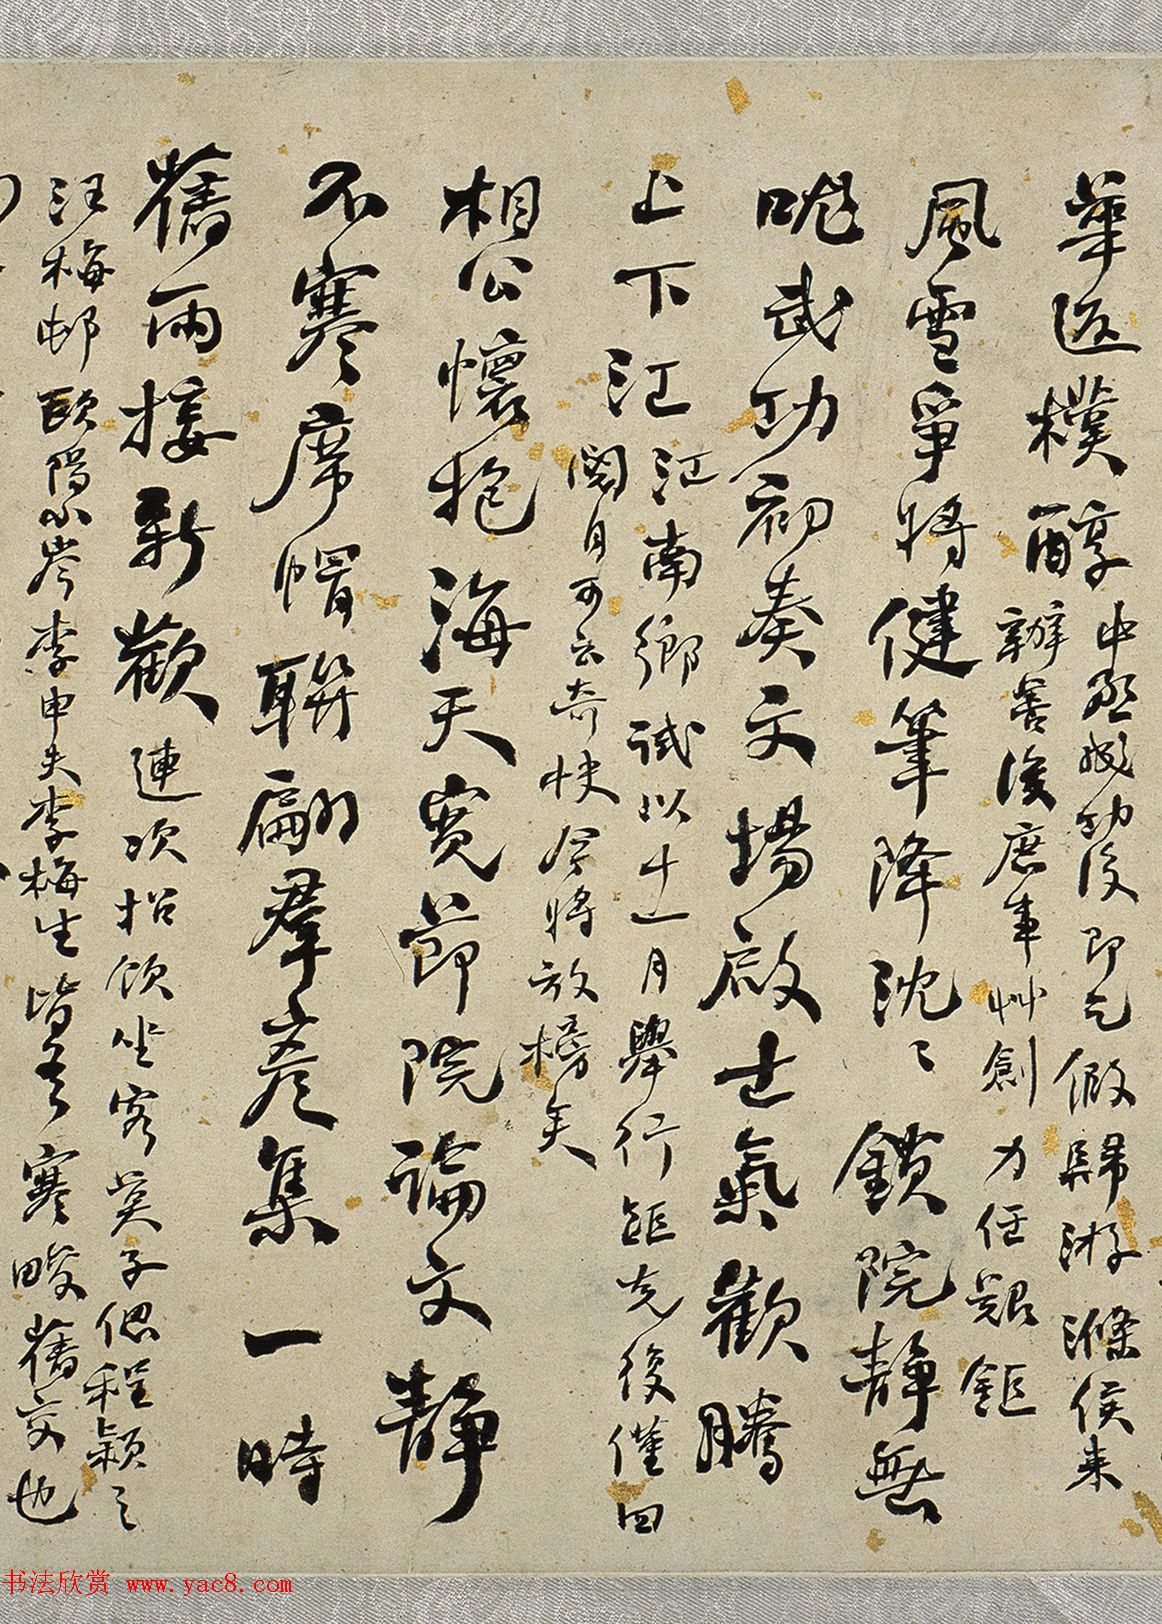 華返樸醇中丞戡功後即乞假歸游滌侯來
辦善後庶事艸創力任艱鉅
風雪爭將健筆降沈沈鎖院靜無
哤武功初奏文場啟士氣歡騰
上下江江南鄉試以十一月舉行距克復僅四
閱月可云奇快今將放榜矣
相公懷抱海天寬節院論文靜
不寒席帽聯翩群彥集一時
舊雨接新歡連次招飲坐客莫子偲程穎之
汪梅邨歐陽小岑李申夫李梅生皆吾寒畯舊交也
书法欣赏 www.yac8.com